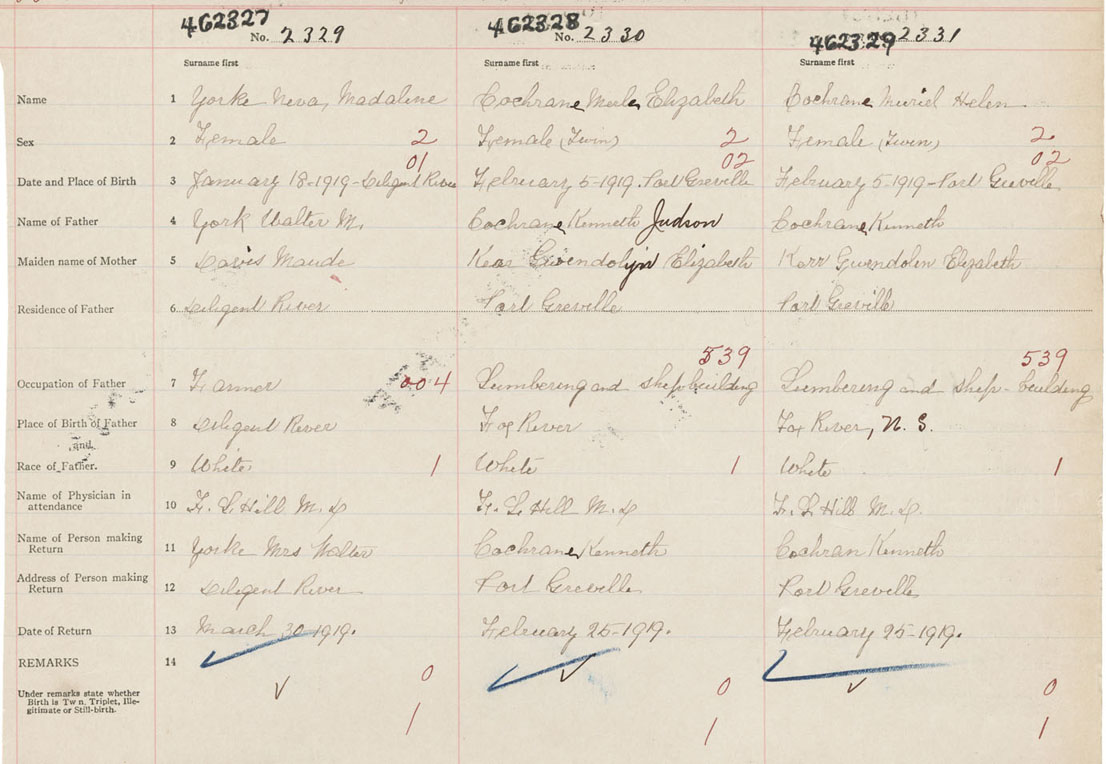 462327 462328 462329
No. 2329 No. 2330 2331
Surname first Surname first Surname first
Name 1 Yorke Neva, Madaline Cochrane Merle Elizabeth Cochrane Muriel Helen
Sex 2 Female 2 Female (Twin) 2 Female (Twin) 2
01 02 02
Date and Place of Birth 3 January 18-1919-Diligent River February 5-1919. Port Greville February 5-1919-Port Greville
Name of Father 4 York Walter M. Cochrane Kenneth Judson Cochrane Kenneth
Maiden name of Mother 5 Davis Maude Kerr Gwendolyn Elizabeth Kerr Gwendolen Elizabeth
Residence of Father 6 Diligent River Port Greville Port Greville
539 539
Occupation of Father 7 Farmer 004 Lumbering and ship building Lumbering and ship-building
Place of Birth of Father 8 Diligent River Fox River Fox River, N. S.
and
Race of Father. 9 White 1 White 1 White 1
Name of Physician in
attendance 10 F. L. Hill M.D F. L. Hill M.D F. L. Hill M.D.
Name of Person making
Return 11 Yorke Mrs Walter Cochrane Kenneth Cochran Kenneth
Address of Person making
Return 12 Diligent River Port Greville Port Greville
Date of Return 13 March 30-1919. February 25-1919. February 25-1919.
REMARKS 14
0 0 0
Under remarks state whether
Birth is Tw n, Triplet, Ille-
gitimate or Still-birth.
1 1 1